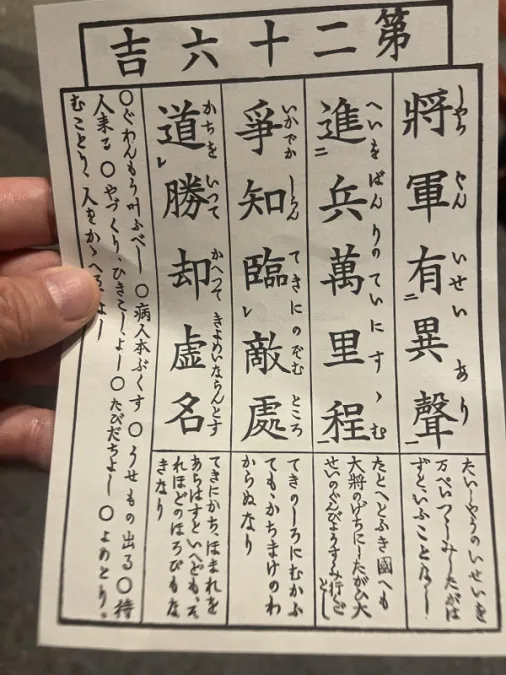 第二十六吉
しやうぐん いせい あり
將軍有二異聲一
たいしやうのいせいを
万ぺいつゝしみしたがは
ずといふことなし
へいをばんりのていにすゝむ
進二兵萬里程一
たとへとふき國へも
大將のげちにしたがひ大
せいのぐんびやうすゝみ行ごとし
いかでか しらん てきにのぞむ ところ
爭知臨レ敵處
てきのしろにむかふ
ても、かちまけのわ
からぬなり
かちを いつて かへつて きよめいならんとす
道レ勝却虚名
てきにかち、ほまれを
あらはすといへども、そ
れほどのほろびもな
きなり
〇ぐわんもう叶ふべし 〇病人本ぶくす 〇うせもの出る 〇待
人来る 〇やづくり、ひきこしよし 〇たびだちよし 〇よめとり、
むことり、人をかゝへるよし